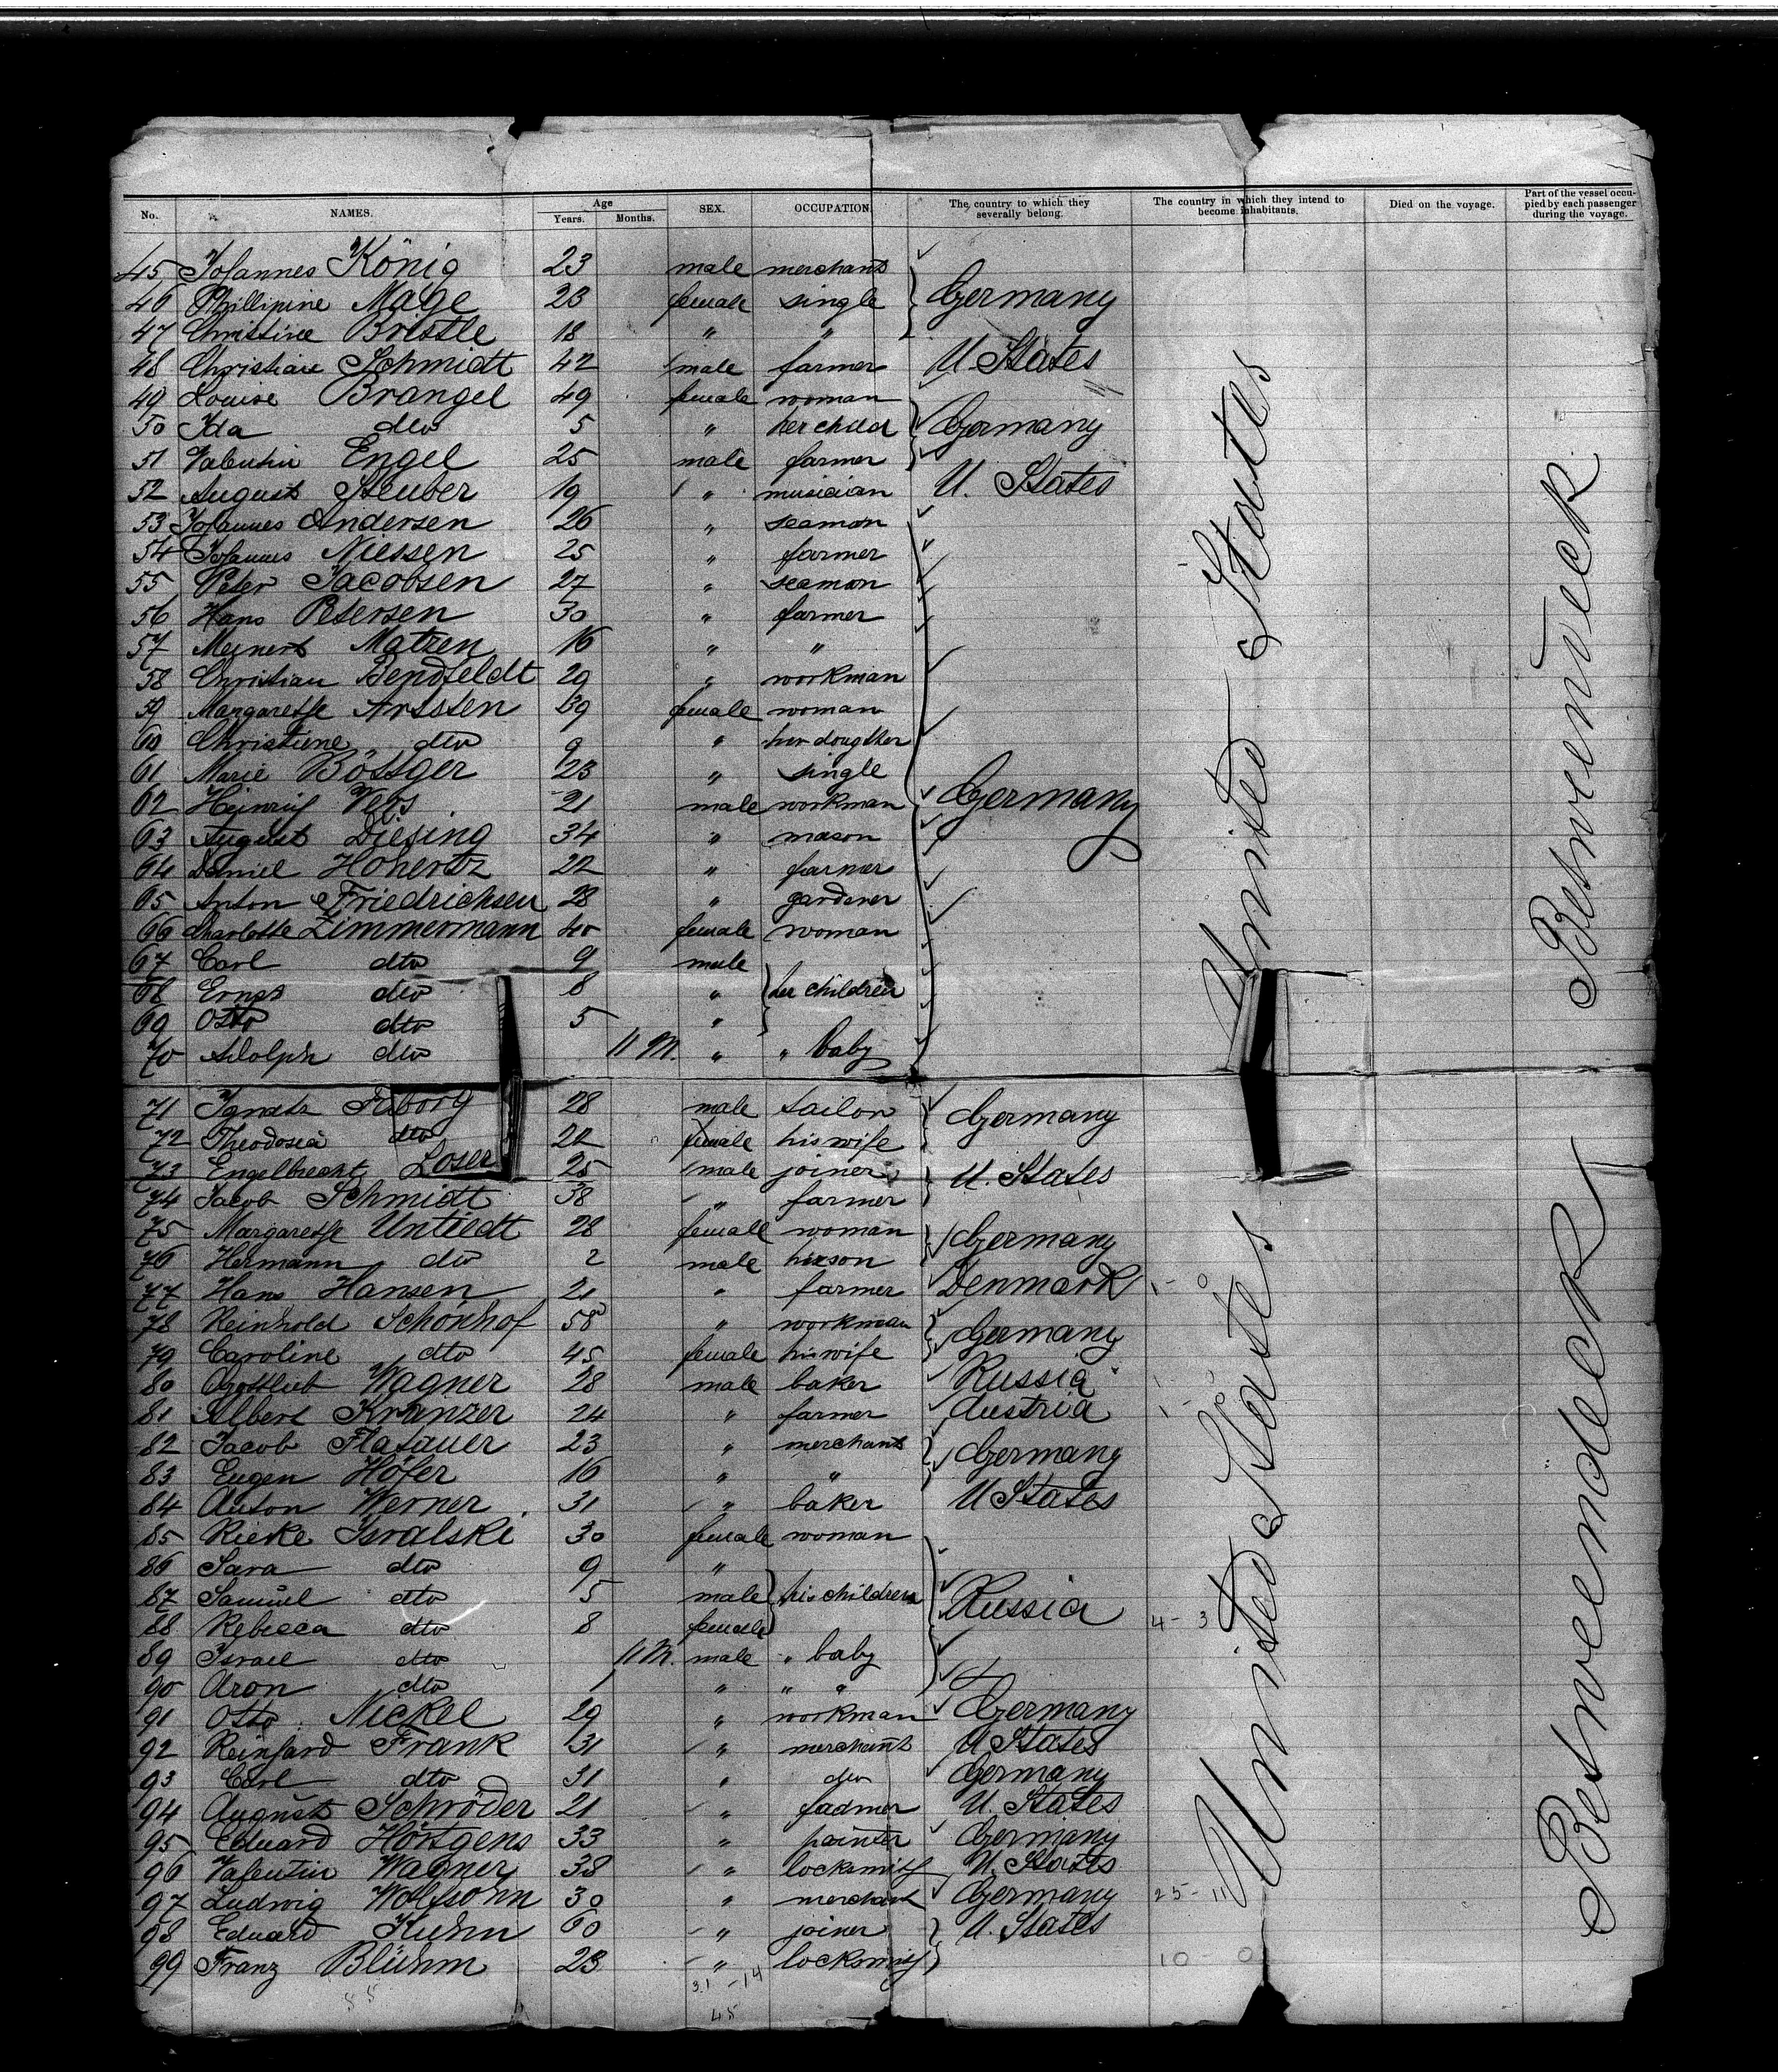 No. NAMES. Age Years. Months. SEX. OCCUPATION The country to which they severally belong. The country in which they intend to become inhabitants. Died on the voyage. Part of the vessel occupied by each passenger during the voyage.
45 Johannes König 23 male merchant
46 Phillipine Mage 23 female single Germany
47 Christine Bristle 18 " "
48 Christian Schmidt 42 male farmer U. States
49 Louise Brangel 49 female woman
50 Ida dto 5 " her child Germany
51 Valentin Engel 25 male farmer
52 August Steuber 19 " musician U. States
53 Johannes Andersen 26 " seaman
54 Johannes Niessen 25 " farmer
55 Peter Jacobsen 27 " seaman
56 Hans Petersen 30 " farmer
57 Meinert Matzen 16 " "
58 Christian Bendfeldt 29 " workman
59 Margarethe Arssten 39 female woman
60 Christiene dto 9 " her dougther
61 Marie Böttger 23 " single
62 Heinrich Vers 21 male workman Germany
63 August Diesing 34 " mason
64 Daniel Hohertz 22 " farmer
65 Anton Friedrichsen 28 " gardener
66 Charlotte Zimmermann 40 female woman
67 Carl dto 9 male
68 Ernst dto 8 " her children
69 Otto dto 5 "
70 Adolph dto 11 M. " " baby
United States
Betweendeck
71 Ignatz 28 male tailor Germany
72 Theodosia dto 22 female his wife
73 Engelbrecht Loser 25 male joiner U. States
74 Jacob Schmidt 38 " farmer
75 Margarethe Untiedt 28 female woman Germany
76 Hermann dto 2 male her son
77 Hans Hansen 21 " farmer Denmark 1 - 0
78 Reinhold Schönhof 58 " workman Germany
79 Caroline dto 45 female his wife
80 Gottlieb Wagner 28 male baker Russia 1 - 0
81 Albert Kranzer 24 " farmer Austria 1 - 0
82 Jacob Flatauer 23 " merchant Germany
83 Eugen Höfer 16 " "
84 Anton Werner 31 " baker U States
85 Rieke Isralski 30 female woman
86 Sara dto 9 "
87 Samuel dto 5 male his children Russia 4 - 3
88 Rebecca dto 8 female
89 Israel dto 11 M. male " baby
90 Aron dto 1 " " "
91 Otto Nickel 29 " workman Germany
92 Reinhard Frank 31 " merchant U States
93 Carl dto 31 " dto Germany
94 August Schröder 21 " fadmer U. States
95 Eduard Hörtgens 33 " painter Germany
96 Valentin Wagner 38 " locksmith U. States
97 Ludwig Wolfsohn 30 " merchant Germany 25 - 11
98 Eduard Kuhn 60 " joiner U. States
99 Franz Blühm 23 " locksmith 10 - 0
United States
Betweendeck
55 31 - 14
45